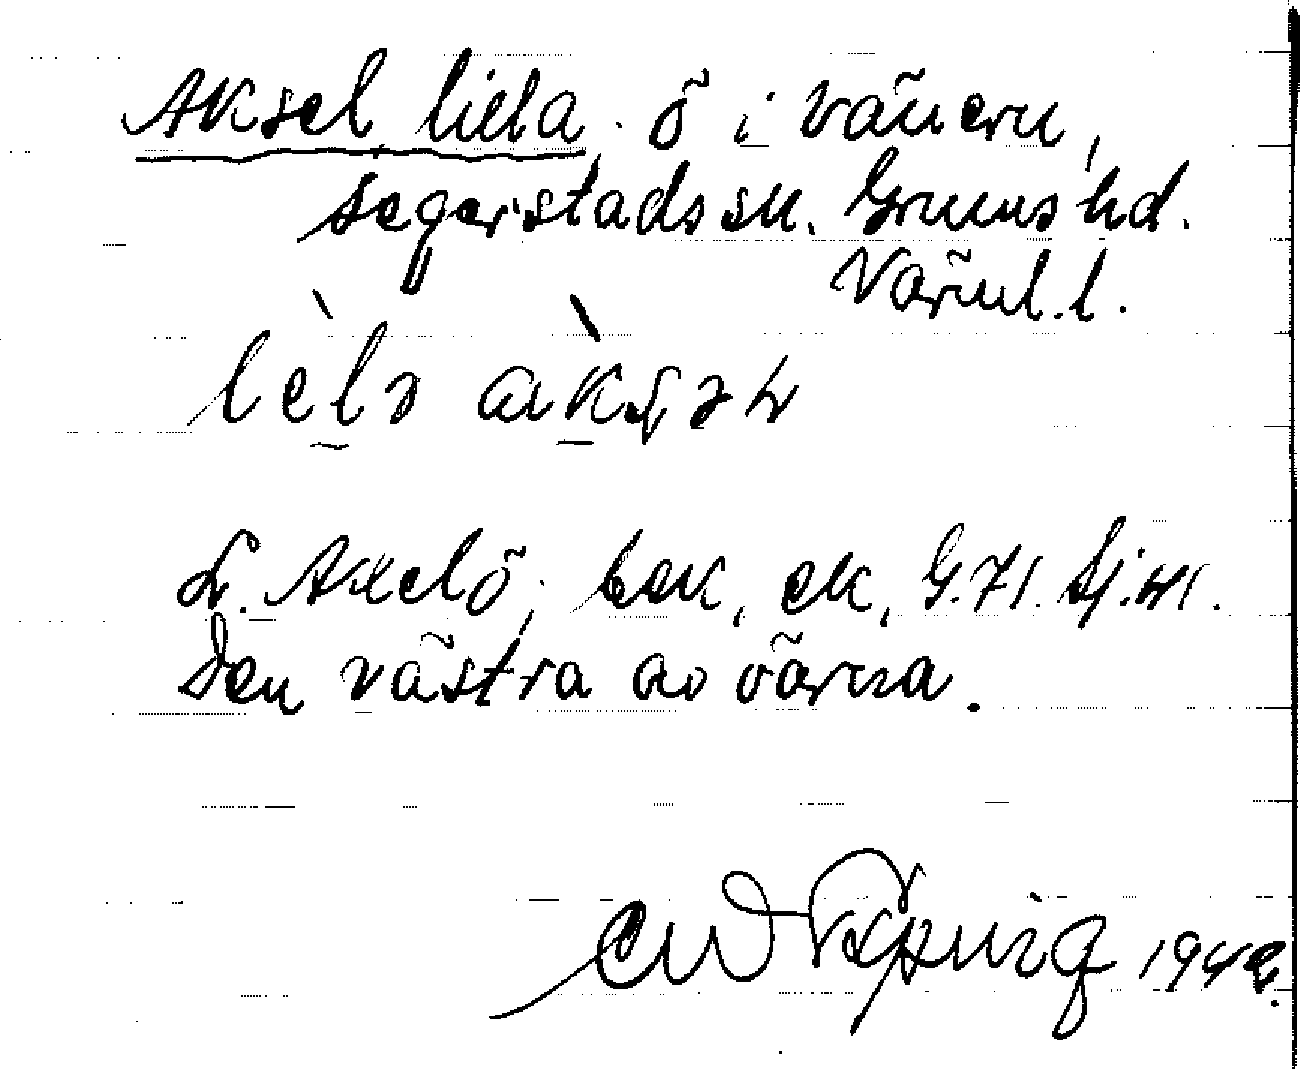 Aksel lilla, ö i Vänern,
Segerstads sn. Grums hd.
Värml. l.
lèlə àksəɴ
L. Axelö; bek, ek, G.71. Sj.kt.
Den västra av öarna.
1942.